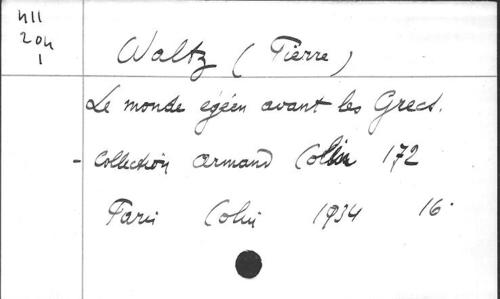 411
204
1
Waltz (Pierre)
Le monde egéen avant les Grecs.
- Collection Armand Colin 172
Paris Colin 1934 16°